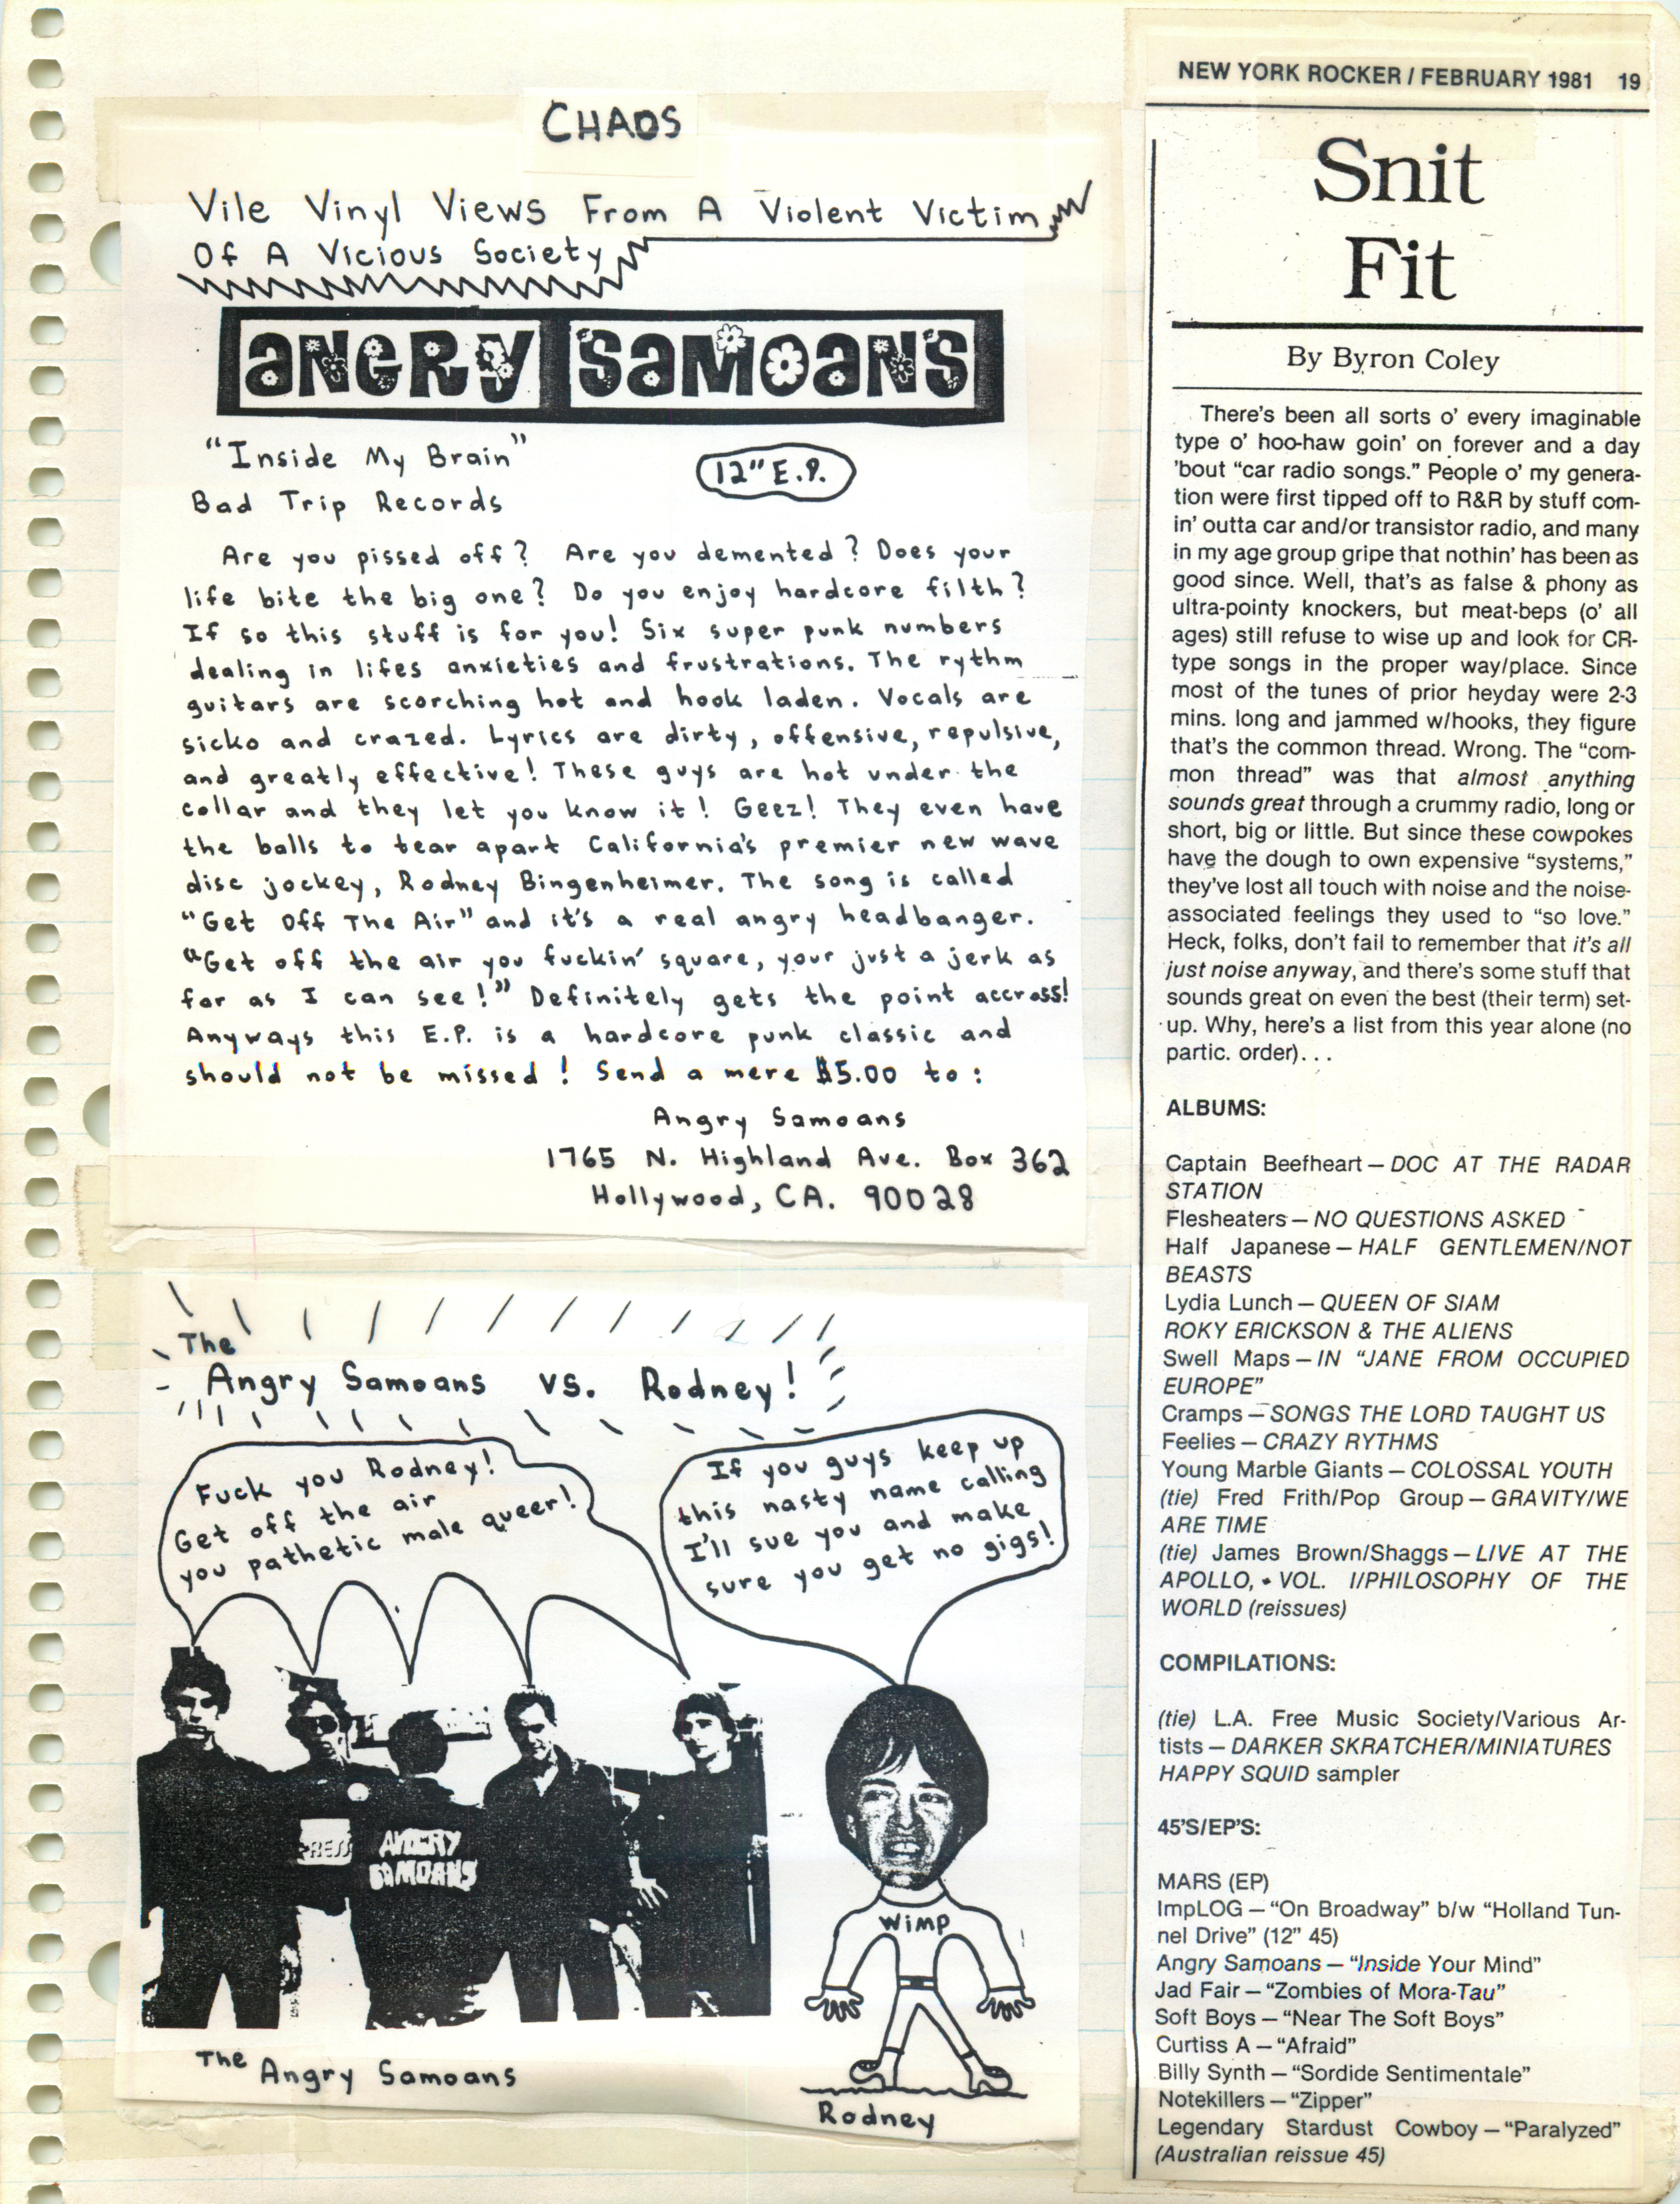 CHAOS
Vile Vinyl Views From A Violent Victim
Of A Vicious Society
ANGRY SAMOANS
"Inside My Brain"
12" E.P.
Bad Trip Records
Are you pissed off? Are you demented? Does your
life bite the big one? Do you enjoy hardcore filth?
If so this stuff is for you! Six super punk numbers
dealing in lifes anxieties and frustrations. The rythm
guitars are scorching hot and hook laden. Vocals are
sicko and crazed. Lyrics are dirty, offensive, repulsive,
and greatly effective! These guys are hot under the
collar and they let you know it! Geez! They even have
the balls to tear apart California's premier new wave
disc jockey, Rodney Bingenheimer. The song is called
"Get Off The Air" and it's a real angry headbanger.
"Get off the air you fuckin' square, your just a jerk as
far as I can see!" Definitely gets the point accross!
Anyways this E.P. is a hardcore punk classic and
should not be missed! Send a mere $5.00 to:
Angry Samoans
1765 N. Highland Ave. Box 362
Hollywood, CA. 90028
The
Angry Samoans vs. Rodney!
Fuck you Rodney!
Get off the air
you pathetic male queer!
If you guys keep up
this nasty name calling
I'll sue you and make
sure you get no gigs!
PRESS
ANGRY
SAMOANS
WIMP
The Angry Samoans
Rodney
NEW YORK ROCKER / FEBRUARY 1981 19
Snit
Fit
By Byron Coley
There's been all sorts o' every imaginable
type o' hoo-haw goin' on forever and a day
'bout "car radio songs." People o' my genera-
tion were first tipped off to R&R by stuff com-
in' outta car and/or transistor radio, and many
in my age group gripe that nothin' has been as
good since. Well, that's as false & phony as
ultra-pointy knockers, but meat-beps (o' all
ages) still refuse to wise up and look for CR-
type songs in the proper way/place. Since
most of the tunes of prior heyday were 2-3
mins. long and jammed w/hooks, they figure
that's the common thread. Wrong. The "com-
mon thread" was that almost anything
sounds great through a crummy radio, long or
short, big or little. But since these cowpokes
have the dough to own expensive "systems,"
they've lost all touch with noise and the noise-
associated feelings they used to "so love."
Heck, folks, don't fail to remember that it's all
just noise anyway, and there's some stuff that
sounds great on even the best (their term) set-
up. Why, here's a list from this year alone (no
partic. order)...
ALBUMS:
Captain Beefheart — DOC AT THE RADAR
STATION
Flesheaters — NO QUESTIONS ASKED
Half Japanese — HALF GENTLEMEN/NOT
BEASTS
Lydia Lunch — QUEEN OF SIAM
ROKY ERICKSON & THE ALIENS
Swell Maps — IN "JANE FROM OCCUPIED
EUROPE"
Cramps — SONGS THE LORD TAUGHT US
Feelies — CRAZY RYTHMS
Young Marble Giants — COLOSSAL YOUTH
(tie) Fred Frith/Pop Group — GRAVITY/WE
ARE TIME
(tie) James Brown/Shaggs — LIVE AT THE
APOLLO, VOL. I/PHILOSOPHY OF THE
WORLD (reissues)
COMPILATIONS:
(tie) L.A. Free Music Society/Various Ar-
tists — DARKER SKRATCHER/MINIATURES
HAPPY SQUID sampler
45'S/EP'S:
MARS (EP)
ImpLOG — "On Broadway" b/w "Holland Tun-
nel Drive" (12" 45)
Angry Samoans — "Inside Your Mind"
Jad Fair — "Zombies of Mora-Tau"
Soft Boys — "Near The Soft Boys"
Curtiss A — "Afraid"
Billy Synth — "Sordide Sentimentale"
Notekillers — "Zipper"
Legendary Stardust Cowboy — "Paralyzed"
(Australian reissue 45)